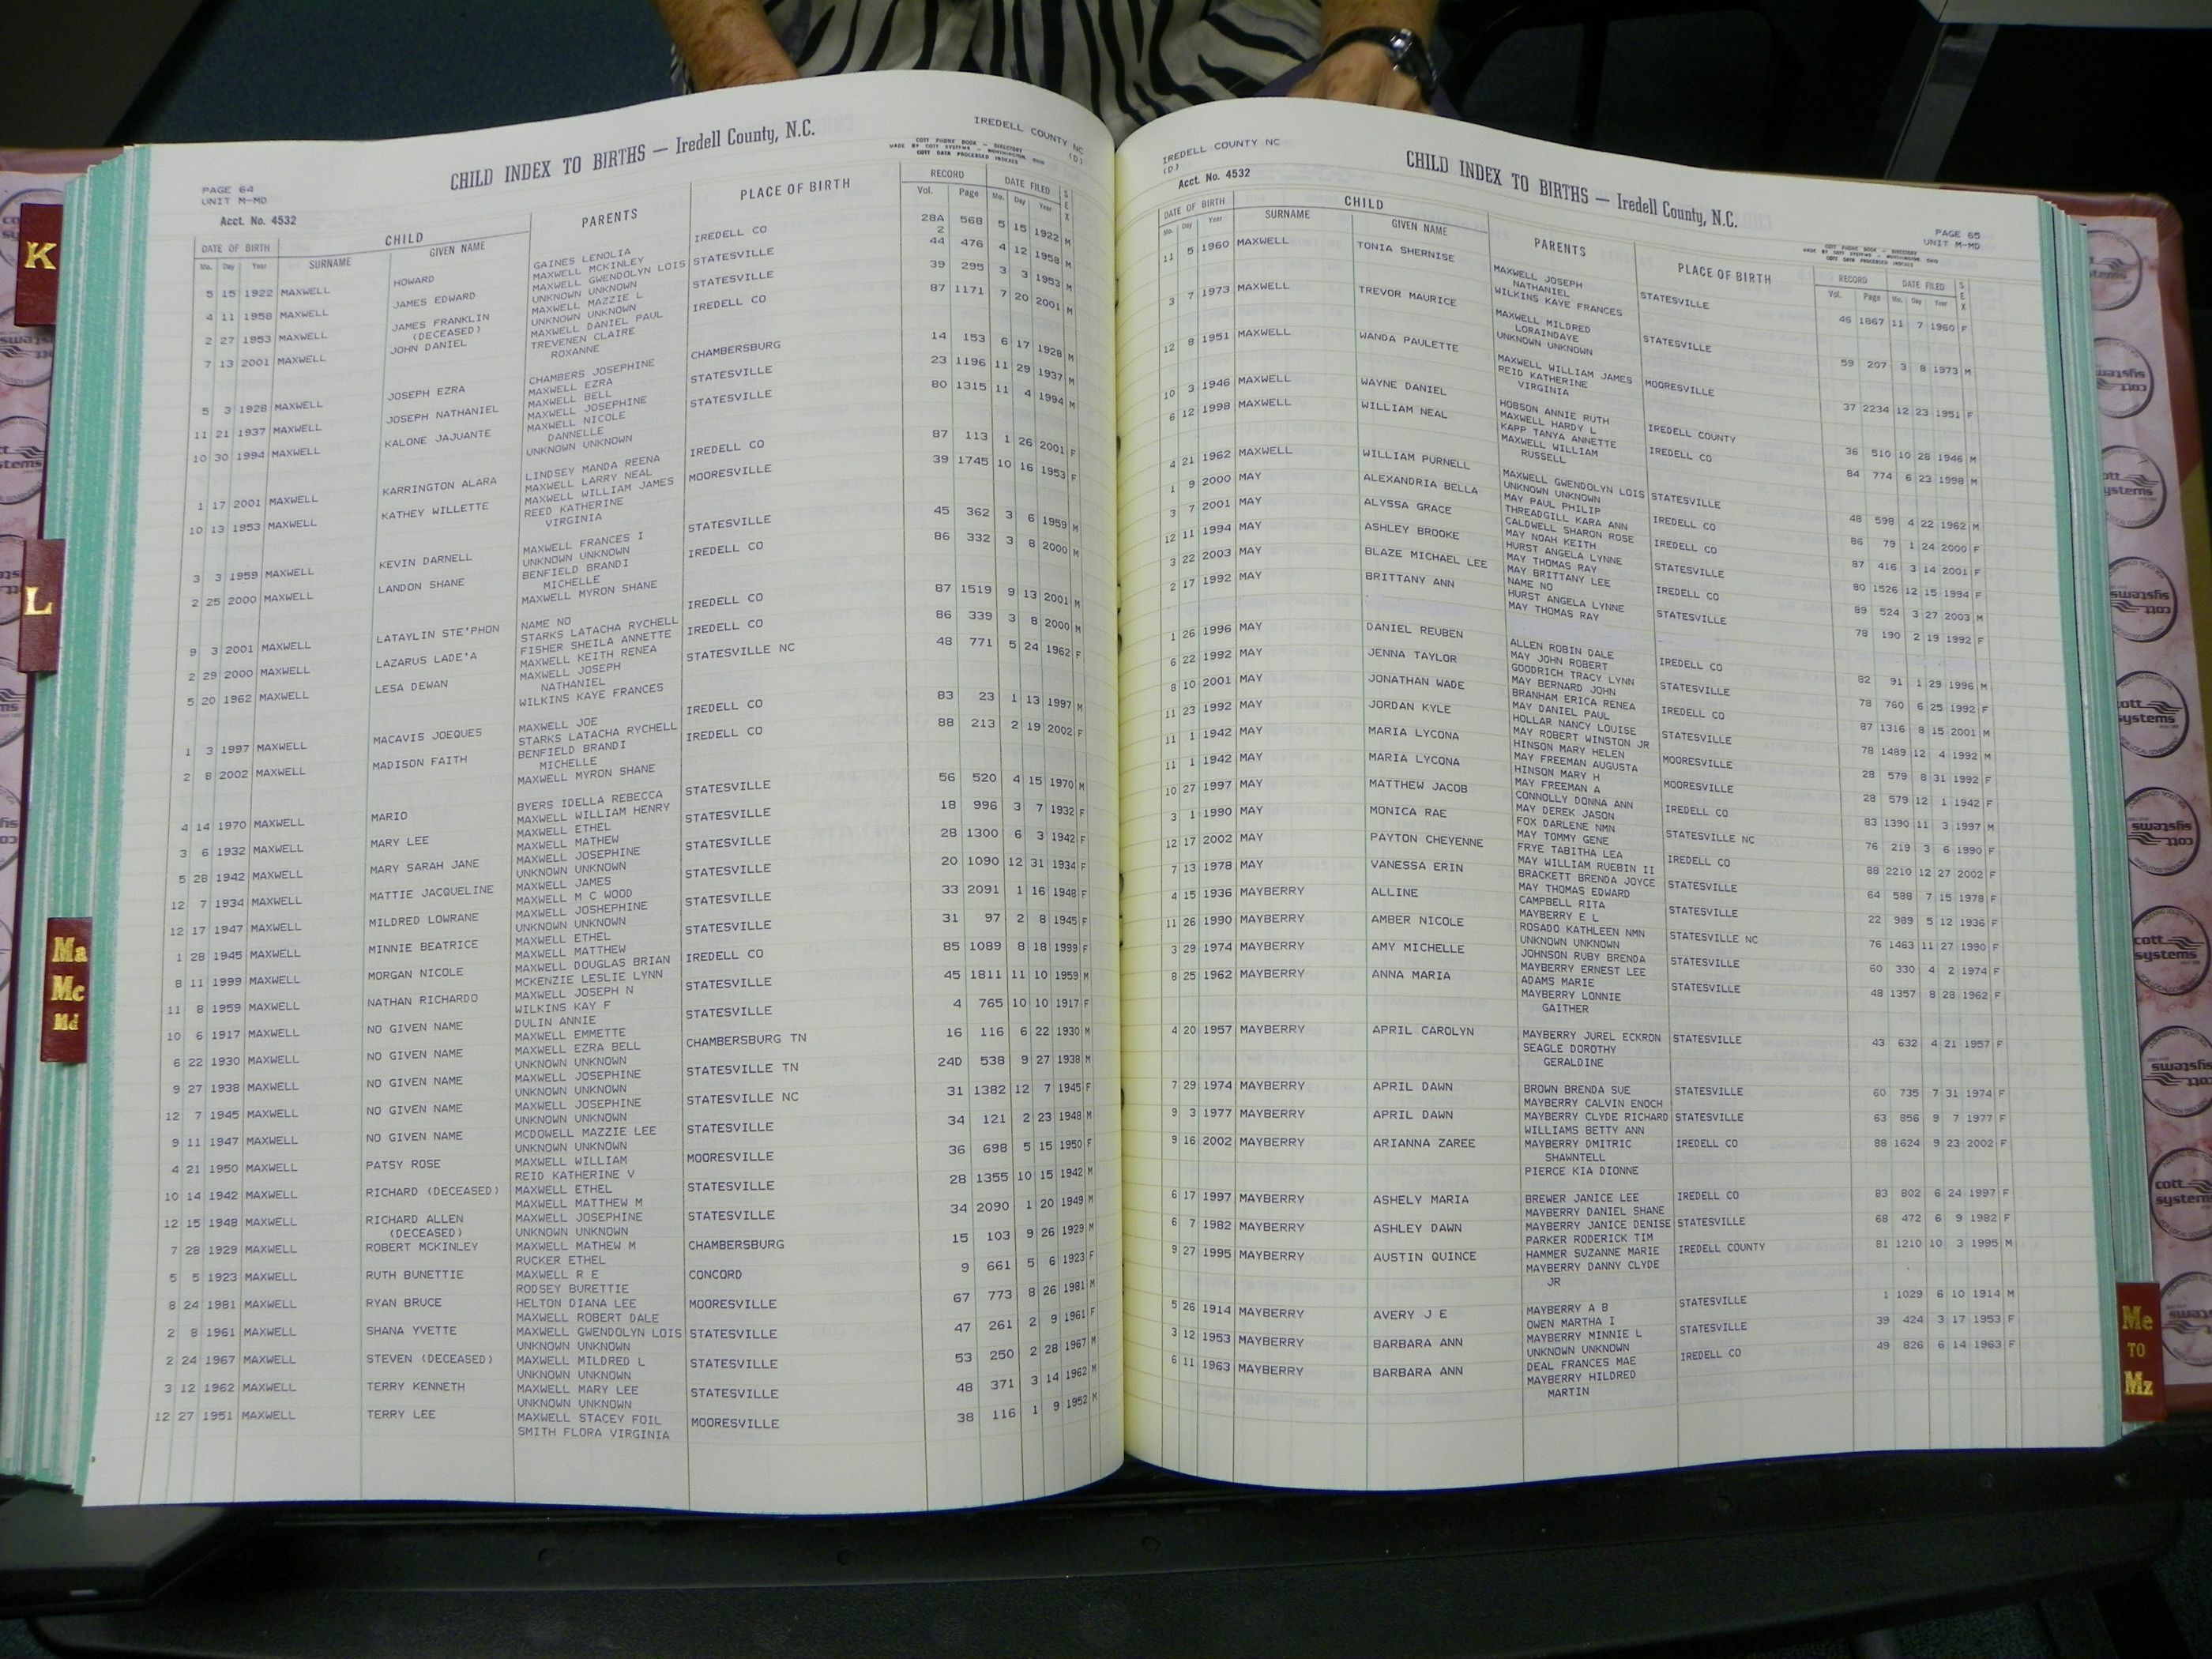 IREDELL COUNTY NC
(D)
CHILD INDEX TO BIRTHS — Iredell County, N.C.
COTT PHONE BOOK - DIRECTORY
MADE BY COTT SYSTEMS - WORTHINGTON, OHIO
COTT DATA PROCESSED INDEXES
PAGE 64
UNIT M-MD
Acct. No. 4532
DATE OF BIRTH CHILD PARENTS PLACE OF BIRTH RECORD DATE FILED SEX
Mo. Day Year SURNAME GIVEN NAME Vol. Page Mo. Day Year
5 15 1922 MAXWELL HOWARD GAINES LENOLIA IREDELL CO 28A 568 5 15 1922 M
MAXWELL MCKINLEY 2
4 11 1958 MAXWELL JAMES EDWARD MAXWELL GWENDOLYN LOIS STATESVILLE 44 476 4 12 1958 M
UNKNOWN UNKNOWN
2 27 1953 MAXWELL JAMES FRANKLIN MAXWELL MAZZIE L STATESVILLE 39 295 3 3 1953 M
(DECEASED) UNKNOWN UNKNOWN
7 13 2001 MAXWELL JOHN DANIEL MAXWELL DANIEL PAUL IREDELL CO 87 1171 7 20 2001 M
TREVENEN CLAIRE
ROXANNE
5 3 1928 MAXWELL JOSEPH EZRA CHAMBERS JOSEPHINE CHAMBERSBURG 14 153 6 17 1928 M
MAXWELL EZRA
11 21 1937 MAXWELL JOSEPH NATHANIEL MAXWELL BELL STATESVILLE 23 1196 11 29 1937 M
MAXWELL JOSEPHINE
10 30 1994 MAXWELL KALONE JAJUANTE MAXWELL NICOLE STATESVILLE 80 1315 11 4 1994 M
DANNELLE
UNKNOWN UNKNOWN
1 17 2001 MAXWELL KARRINGTON ALARA LINDSEY MANDA REENA IREDELL CO 87 113 1 26 2001 F
MAXWELL LARRY NEAL
10 13 1953 MAXWELL KATHEY WILLETTE MAXWELL WILLIAM JAMES MOORESVILLE 39 1745 10 16 1953 F
REED KATHERINE
VIRGINIA
3 3 1959 MAXWELL KEVIN DARNELL MAXWELL FRANCES I STATESVILLE 45 362 3 6 1959 M
UNKNOWN UNKNOWN
2 25 2000 MAXWELL LANDON SHANE BENFIELD BRANDI IREDELL CO 86 332 3 8 2000 M
MICHELLE
MAXWELL MYRON SHANE
9 3 2001 MAXWELL LATAYLIN STE'PHON NAME NO IREDELL CO 87 1519 9 13 2001 M
STARKS LATACHA RYCHELL
2 29 2000 MAXWELL LAZARUS LADE'A FISHER SHEILA ANNETTE IREDELL CO 86 339 3 8 2000 M
MAXWELL KEITH RENEA
5 20 1962 MAXWELL LESA DEWAN MAXWELL JOSEPH STATESVILLE NC 48 771 5 24 1962 F
NATHANIEL
WILKINS KAYE FRANCES
1 3 1997 MAXWELL MACAVIS JOEQUES MAXWELL JOE IREDELL CO 83 23 1 13 1997 M
STARKS LATACHA RYCHELL
2 8 2002 MAXWELL MADISON FAITH BENFIELD BRANDI IREDELL CO 88 213 2 19 2002 F
MICHELLE
MAXWELL MYRON SHANE
4 14 1970 MAXWELL MARIO BYERS IDELLA REBECCA STATESVILLE 56 520 4 15 1970 M
MAXWELL WILLIAM HENRY
3 6 1932 MAXWELL MARY LEE MAXWELL ETHEL STATESVILLE 18 996 3 7 1932 F
MAXWELL MATHEW
5 28 1942 MAXWELL MARY SARAH JANE MAXWELL JOSEPHINE STATESVILLE 28 1300 6 3 1942 F
UNKNOWN UNKNOWN
12 7 1934 MAXWELL MATTIE JACQUELINE MAXWELL JAMES STATESVILLE 20 1090 12 31 1934 F
MAXWELL M C WOOD
12 17 1947 MAXWELL MILDRED LOWRANE MAXWELL JOSHEPHINE STATESVILLE 33 2091 1 16 1948 F
UNKNOWN UNKNOWN
1 28 1945 MAXWELL MINNIE BEATRICE MAXWELL ETHEL STATESVILLE 31 97 2 8 1945 F
MAXWELL MATTHEW
8 11 1999 MAXWELL MORGAN NICOLE MAXWELL DOUGLAS BRIAN IREDELL CO 85 1089 8 18 1999 F
MCKENZIE LESLIE LYNN
11 8 1959 MAXWELL NATHAN RICHARDO MAXWELL JOSEPH N STATESVILLE 45 1811 11 10 1959 M
WILKINS KAY F
10 6 1917 MAXWELL NO GIVEN NAME DULIN ANNIE STATESVILLE 4 765 10 10 1917 F
MAXWELL EMMETTE
6 22 1930 MAXWELL NO GIVEN NAME MAXWELL EZRA BELL CHAMBERSBURG TN 16 116 6 22 1930 M
UNKNOWN UNKNOWN
9 27 1938 MAXWELL NO GIVEN NAME MAXWELL JOSEPHINE STATESVILLE TN 24D 538 9 27 1938 M
UNKNOWN UNKNOWN
12 7 1945 MAXWELL NO GIVEN NAME MAXWELL JOSEPHINE STATESVILLE NC 31 1382 12 7 1945 F
UNKNOWN UNKNOWN
9 11 1947 MAXWELL NO GIVEN NAME MCDOWELL MAZZIE LEE STATESVILLE 34 121 2 23 1948 M
UNKNOWN UNKNOWN
4 21 1950 MAXWELL PATSY ROSE MAXWELL WILLIAM MOORESVILLE 36 698 5 15 1950 F
REID KATHERINE V
10 14 1942 MAXWELL RICHARD (DECEASED) MAXWELL ETHEL STATESVILLE 28 1355 10 15 1942 M
MAXWELL MATTHEW M
12 15 1948 MAXWELL RICHARD ALLEN MAXWELL JOSEPHINE STATESVILLE 34 2090 1 20 1949 M
(DECEASED) UNKNOWN UNKNOWN
7 28 1929 MAXWELL ROBERT MCKINLEY MAXWELL MATHEW M CHAMBERSBURG 15 103 9 26 1929 M
RUCKER ETHEL
5 5 1923 MAXWELL RUTH BUNETTIE MAXWELL R E CONCORD 9 661 5 6 1923 F
RODSEY BURETTIE
8 24 1981 MAXWELL RYAN BRUCE HELTON DIANA LEE MOORESVILLE 67 773 8 26 1981 M
MAXWELL ROBERT DALE
2 8 1961 MAXWELL SHANA YVETTE MAXWELL GWENDOLYN LOIS STATESVILLE 47 261 2 9 1961 F
UNKNOWN UNKNOWN
2 24 1967 MAXWELL STEVEN (DECEASED) MAXWELL MILDRED L STATESVILLE 53 250 2 28 1967 M
UNKNOWN UNKNOWN
3 12 1962 MAXWELL TERRY KENNETH MAXWELL MARY LEE STATESVILLE 48 371 3 14 1962 M
UNKNOWN UNKNOWN
12 27 1951 MAXWELL TERRY LEE MAXWELL STACEY FOIL MOORESVILLE 38 116 1 9 1952 M
SMITH FLORA VIRGINIA
K
L
Ma
Mc
Md
IREDELL COUNTY NC
(D)
Acct. No. 4532
CHILD INDEX TO BIRTHS — Iredell County, N.C.
PAGE 65
UNIT M-MD
COTT PHONE BOOK - DIRECTORY
MADE BY COTT SYSTEMS - WORTHINGTON, OHIO
COTT DATA PROCESSED INDEXES
DATE OF BIRTH CHILD PARENTS PLACE OF BIRTH RECORD DATE FILED SEX
Mo. Day Year SURNAME GIVEN NAME Vol. Page Mo. Day Year
11 5 1960 MAXWELL TONIA SHERNISE MAXWELL JOSEPH STATESVILLE 46 1867 11 7 1960 F
NATHANIEL
WILKINS KAYE FRANCES
3 7 1973 MAXWELL TREVOR MAURICE MAXWELL MILDRED STATESVILLE 59 207 3 8 1973 M
LORAINDAYE
UNKNOWN UNKNOWN
12 8 1951 MAXWELL WANDA PAULETTE MAXWELL WILLIAM JAMES MOORESVILLE 37 2234 12 23 1951 F
REID KATHERINE
VIRGINIA
10 3 1946 MAXWELL WAYNE DANIEL HOBSON ANNIE RUTH IREDELL COUNTY 36 510 10 28 1946 M
MAXWELL HARDY L
6 12 1998 MAXWELL WILLIAM NEAL KAPP TANYA ANNETTE IREDELL CO 84 774 6 23 1998 M
MAXWELL WILLIAM
RUSSELL
4 21 1962 MAXWELL WILLIAM PURNELL MAXWELL GWENDOLYN LOIS STATESVILLE 48 598 4 22 1962 M
UNKNOWN UNKNOWN
1 9 2000 MAY ALEXANDRIA BELLA MAY PAUL PHILIP IREDELL CO 86 79 1 24 2000 F
THREADGILL KARA ANN
3 7 2001 MAY ALYSSA GRACE CALDWELL SHARON ROSE IREDELL CO 87 416 3 14 2001 F
MAY NOAH KEITH
12 11 1994 MAY ASHLEY BROOKE HURST ANGELA LYNNE STATESVILLE 80 1526 12 15 1994 F
MAY THOMAS RAY
3 22 2003 MAY BLAZE MICHAEL LEE MAY BRITTANY LEE IREDELL CO 89 524 3 27 2003 M
NAME NO
2 17 1992 MAY BRITTANY ANN HURST ANGELA LYNNE STATESVILLE 78 190 2 19 1992 F
MAY THOMAS RAY
1 26 1996 MAY DANIEL REUBEN ALLEN ROBIN DALE IREDELL CO 82 91 1 29 1996 M
MAY JOHN ROBERT
6 22 1992 MAY JENNA TAYLOR GOODRICH TRACY LYNN STATESVILLE 78 760 6 25 1992 F
MAY BERNARD JOHN
8 10 2001 MAY JONATHAN WADE BRANHAM ERICA RENEA IREDELL CO 87 1316 8 15 2001 M
MAY DANIEL PAUL
11 23 1992 MAY JORDAN KYLE HOLLAR NANCY LOUISE STATESVILLE 78 1489 12 4 1992 M
MAY ROBERT WINSTON JR
11 1 1942 MAY MARIA LYCONA HINSON MARY HELEN MOORESVILLE 28 579 8 31 1992 F
MAY FREEMAN AUGUSTA
11 1 1942 MAY MARIA LYCONA HINSON MARY H MOORESVILLE 28 579 12 1 1942 F
MAY FREEMAN A
10 27 1997 MAY MATTHEW JACOB CONNOLLY DONNA ANN IREDELL CO 83 1390 11 3 1997 M
MAY DEREK JASON
3 1 1990 MAY MONICA RAE FOX DARLENE NMN STATESVILLE NC 76 219 3 6 1990 F
MAY TOMMY GENE
12 17 2002 MAY PAYTON CHEYENNE FRYE TABITHA LEA IREDELL CO 88 2210 12 27 2002 F
MAY WILLIAM RUEBIN II
7 13 1978 MAY VANESSA ERIN BRACKETT BRENDA JOYCE STATESVILLE 64 588 7 15 1978 F
MAY THOMAS EDWARD
4 15 1936 MAYBERRY ALLINE CAMPBELL RITA STATESVILLE 22 989 5 12 1936 F
MAYBERRY E L
11 26 1990 MAYBERRY AMBER NICOLE ROSADO KATHLEEN NMN STATESVILLE NC 76 1463 11 27 1990 F
UNKNOWN UNKNOWN
3 29 1974 MAYBERRY AMY MICHELLE JOHNSON RUBY BRENDA STATESVILLE 60 330 4 2 1974 F
MAYBERRY ERNEST LEE
8 25 1962 MAYBERRY ANNA MARIA ADAMS MARIE STATESVILLE 48 1357 8 28 1962 F
MAYBERRY LONNIE
GAITHER
4 20 1957 MAYBERRY APRIL CAROLYN MAYBERRY JUREL ECKRON STATESVILLE 43 632 4 21 1957 F
SEAGLE DOROTHY
GERALDINE
7 29 1974 MAYBERRY APRIL DAWN BROWN BRENDA SUE STATESVILLE 60 735 7 31 1974 F
MAYBERRY CALVIN ENOCH
9 3 1977 MAYBERRY APRIL DAWN MAYBERRY CLYDE RICHARD STATESVILLE 63 856 9 7 1977 F
WILLIAMS BETTY ANN
9 16 2002 MAYBERRY ARIANNA ZAREE MAYBERRY DMITRIC IREDELL CO 88 1624 9 23 2002 F
SHAWNTELL
PIERCE KIA DIONNE
6 17 1997 MAYBERRY ASHELY MARIA BREWER JANICE LEE IREDELL CO 83 802 6 24 1997 F
MAYBERRY DANIEL SHANE
6 7 1982 MAYBERRY ASHLEY DAWN MAYBERRY JANICE DENISE STATESVILLE 68 472 6 9 1982 F
PARKER RODERICK TIM
9 27 1995 MAYBERRY AUSTIN QUINCE HAMMER SUZANNE MARIE IREDELL COUNTY 81 1210 10 3 1995 M
MAYBERRY DANNY CLYDE
JR
5 26 1914 MAYBERRY AVERY J E MAYBERRY A B STATESVILLE 1 1029 6 10 1914 M
OWEN MARTHA I
3 12 1953 MAYBERRY BARBARA ANN MAYBERRY MINNIE L STATESVILLE 39 424 3 17 1953 F
UNKNOWN UNKNOWN
6 11 1963 MAYBERRY BARBARA ANN DEAL FRANCES MAE IREDELL CO 49 826 6 14 1963 F
MAYBERRY HILDRED
MARTIN
Me
TO
Mz
cott
systems